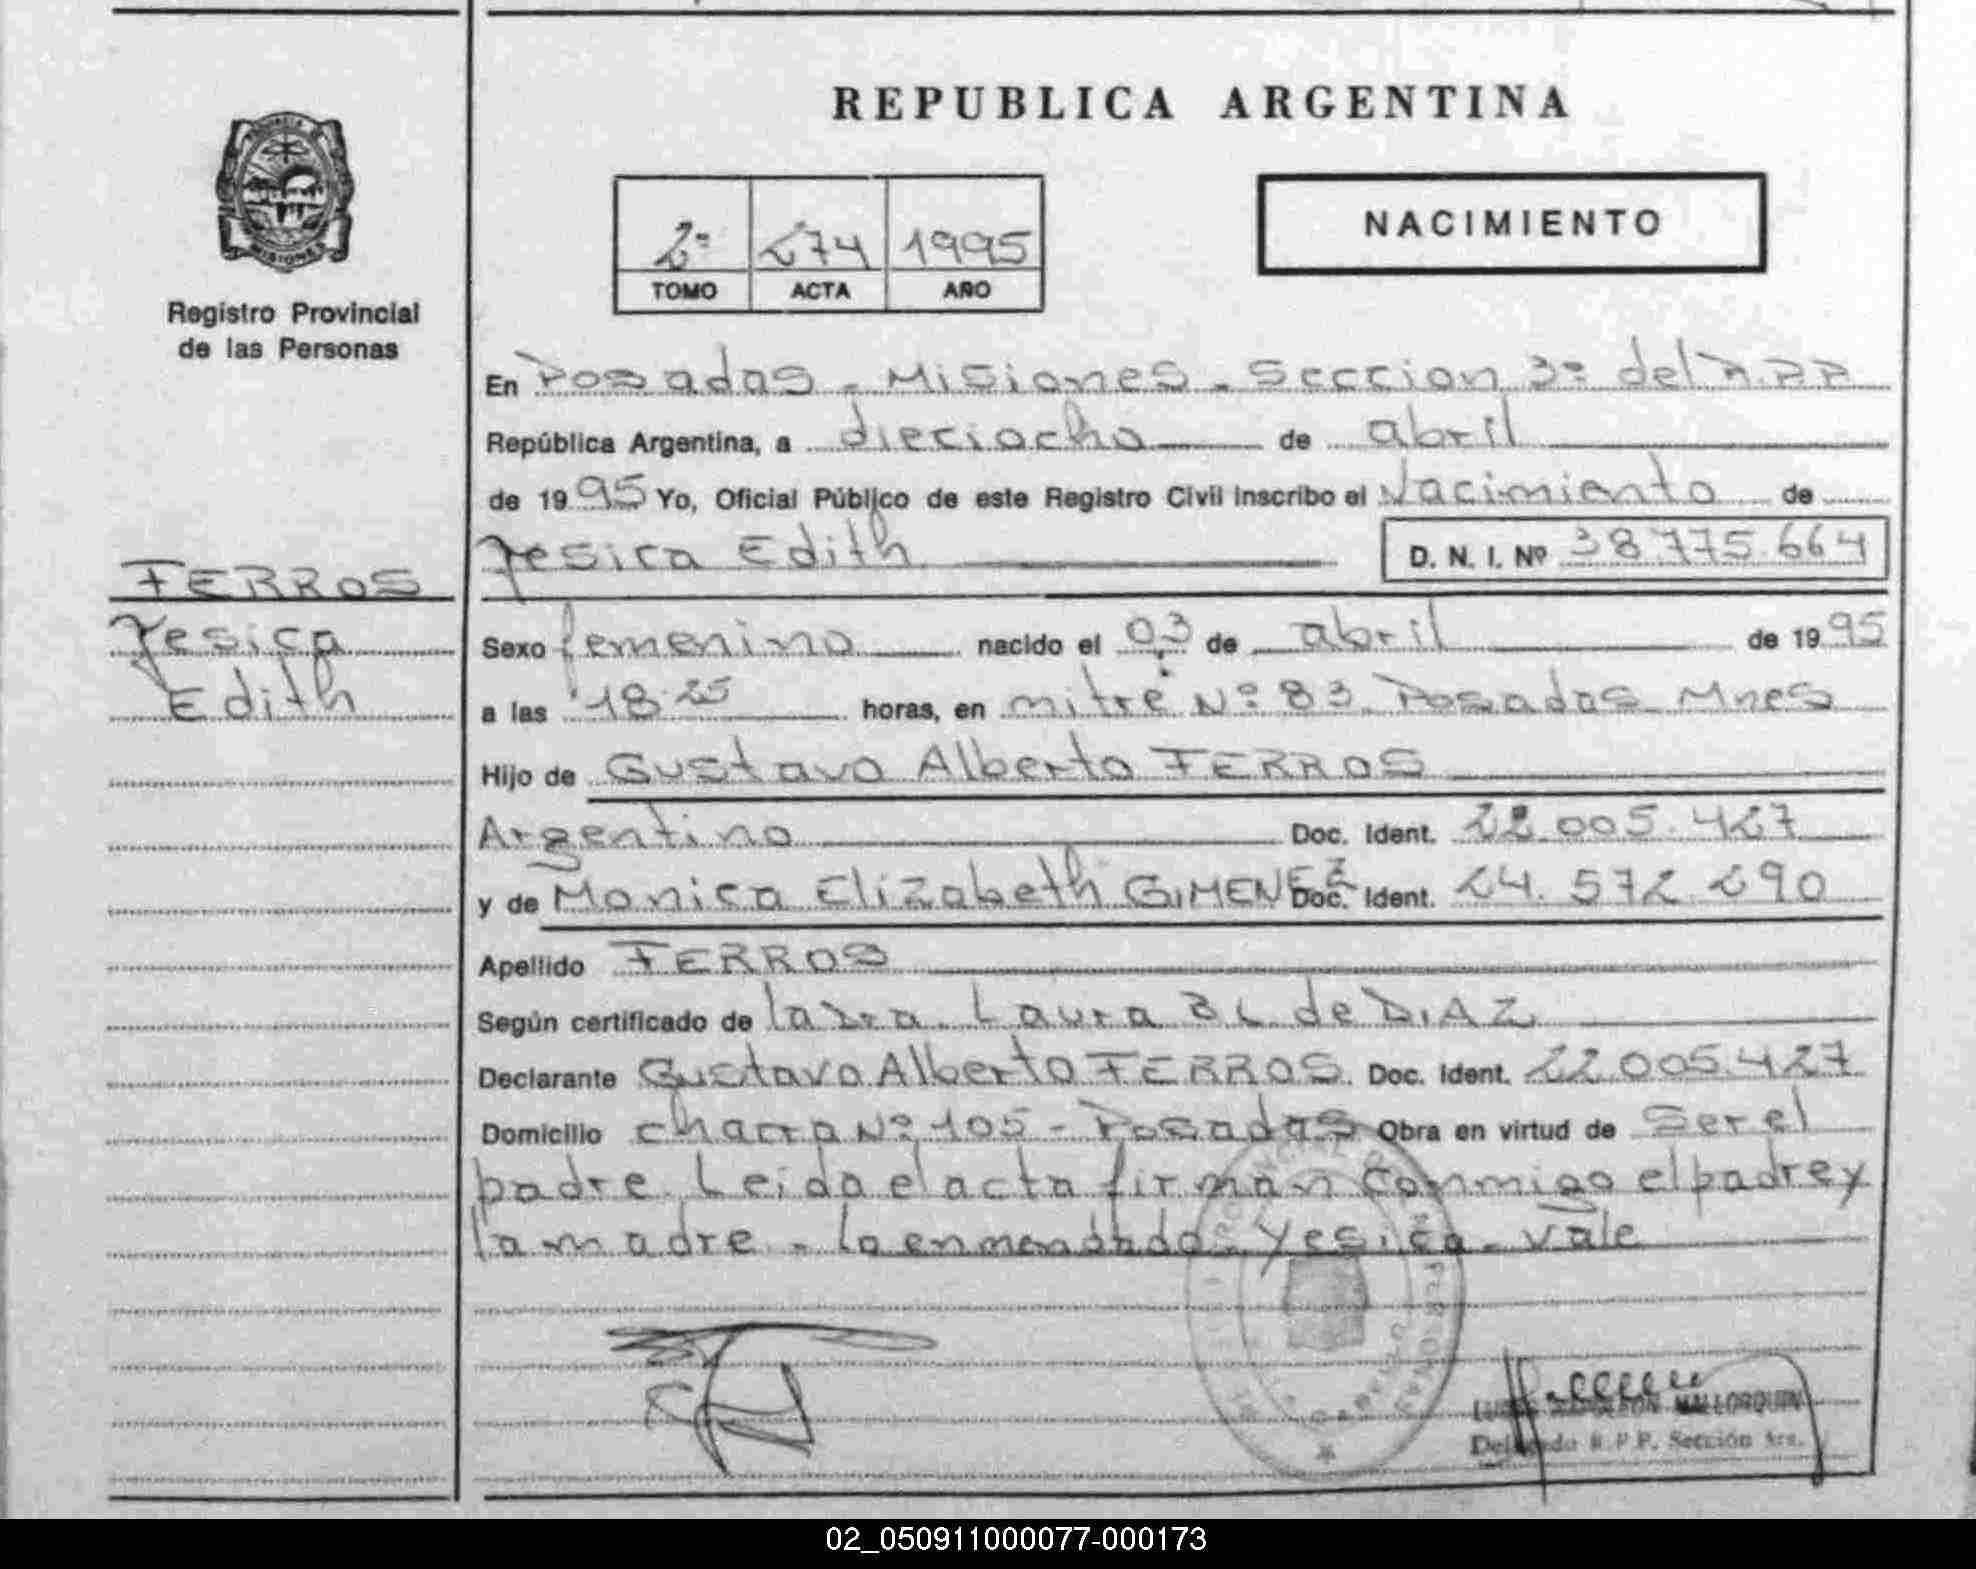 REPUBLICA ARGENTINA
PROVINCIA DE
MISIONES
Registro Provincial
de las Personas
2º 274 1995
TOMO ACTA AÑO
NACIMIENTO
En Posadas - Misiones - Seccion 3º del R.P.P
República Argentina, a dieciocho de abril
de 1995 Yo, Oficial Público de este Registro Civil inscribo el Nacimiento de
Yesica Edith D. N. I. Nº 38.775.664
FERROS
Yesica
Edith
Sexo femenino nacido el 03 de abril de 1995
a las 18.25 horas, en mitre Nº 83 Posadas Mnes
Hijo de Gustavo Alberto FERROS
Argentino Doc. Ident. 22.005.427
y de Monica Elizabeth GIMENEZ Doc. Ident. 24.572.290
Apellido FERROS
Según certificado de la Dra. Laura B L de DIAZ
Declarante Gustavo Alberto FERROS Doc. Ident. 22.005.427
Domicilio chacra Nº 105 - Posadas Obra en virtud de Ser el
padre. Leida el acta firman conmigo el padre y
la madre. - lo enmendado - Yesica - vale
MALLORQUIN
Delegado R.P.P. Sección 3ra.
02_050911000077-000173